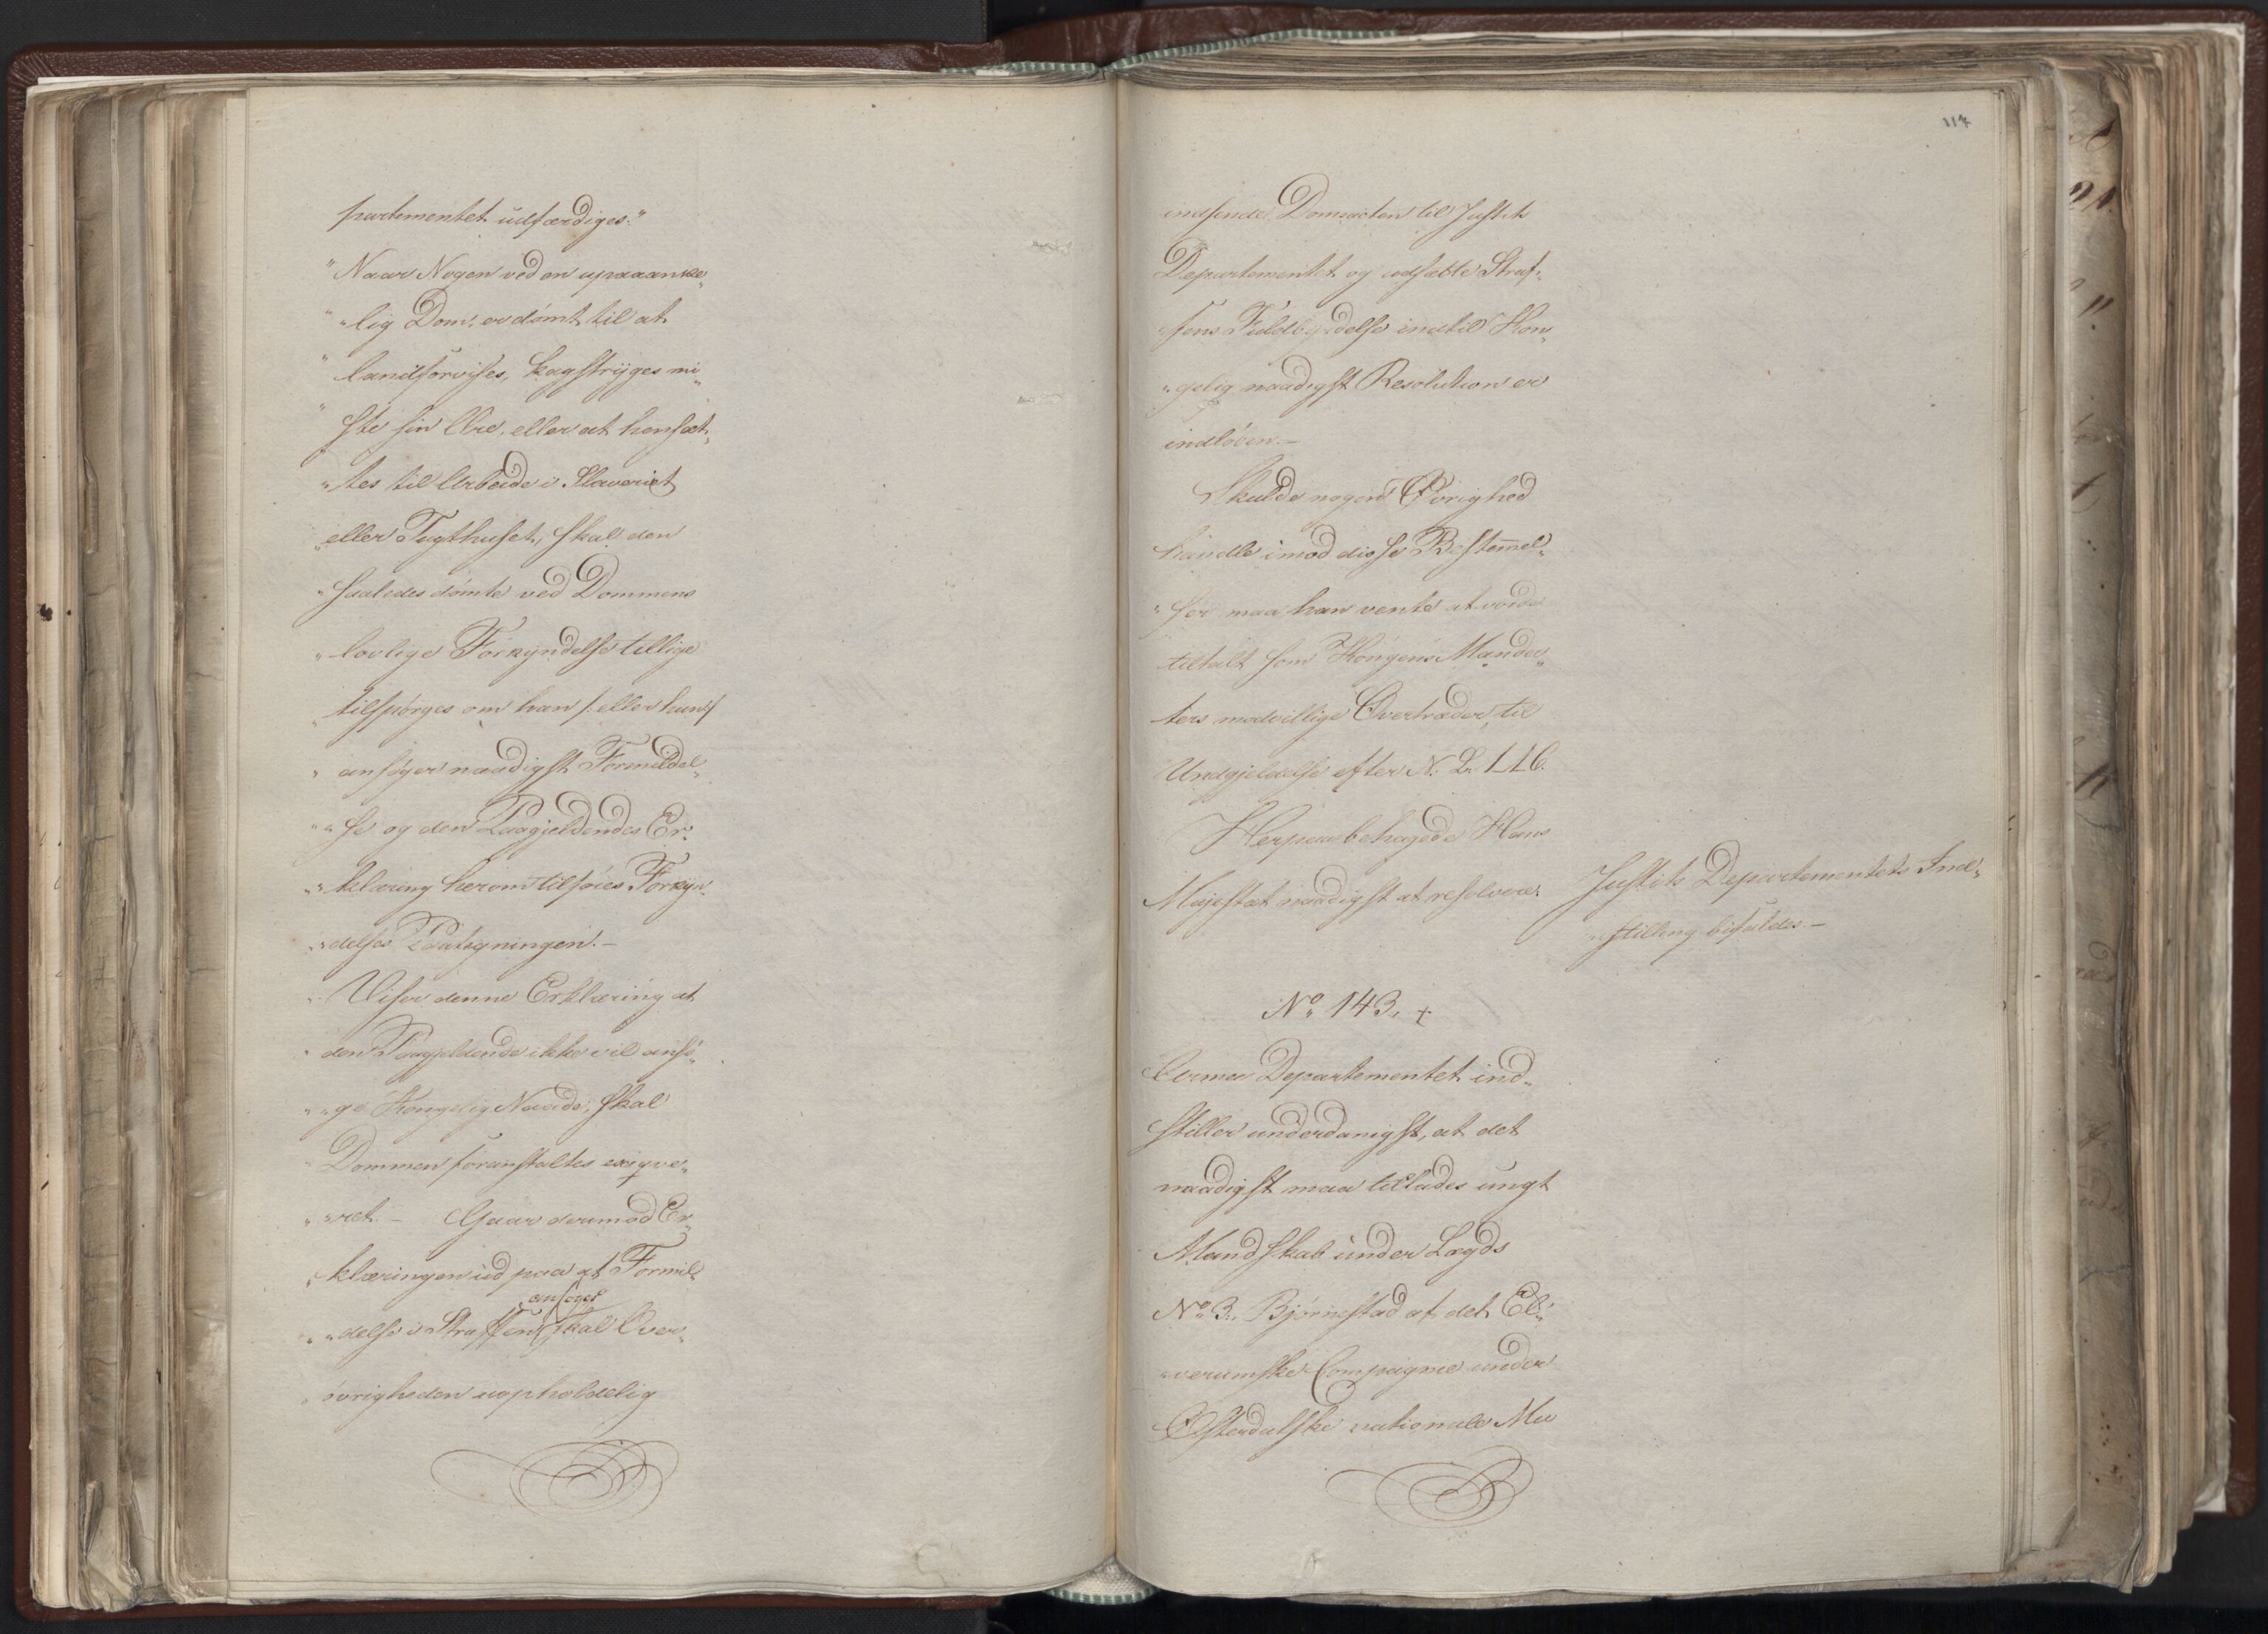 partementet udfærdiges."
"Naar Nogen ved en upaaanke„
" „lig Dom, er dömt til at
" landsforvises, kagstryges mi„
" ste sin Ære, eller at hensæt„
" tes til Arbeide i Slaveriet
„ eller Tugthuset, skal den
" saaledes dömte ved Dommens
„ lovlige Forkyndelse tillige
„ tilspörges om han /: eller hun :/
„ ansöger naadigst Formildel„
" „ se og den Paagjeldendes Er„
" „ klæring herom tilföies Forkyn„
" „ delses Paategningen. –
" Viser denne Erklæring at
" den Paagjeldende ikke vil ansö„
" „ ge Kongelig Naade; skal
" Dommen foranstaltes exiqve„
" „ ret. – Gaar derimod Er„
„ klæringen ud paa at Formil„
ansöges
" „ delse i Straffen skal Över„
„ övrigheden uopholdelig
117
indsende Domsacten til Justits
Departementet og udsætte Straf„
„ fens Fuldbyrdelse indtil Kon„
„ gelig naadigst Resolution er
indlöben. –
Skulde nogen Övrighed
handle imod disse Bestem̄el„
„ ser maa han vente at vorde
tiltalt som Kongens Manda„
ters modvillige Overtræder, til
Undgjeldelse efter N. L. 1.1.6.
Herpaa behagede Hans
Majestæt naadigst at resolvere:
Justits Departementets Ind„
„ stilling bifaldes. –
No 143. +
Armee Departementet ind„
stiller underdanigst, at det
naadigst maa tillades ungt
Mandskab under Lægds
No 3. Björnstad af det El„
„ verumske Compagnie under
Österdalske nationale Mu